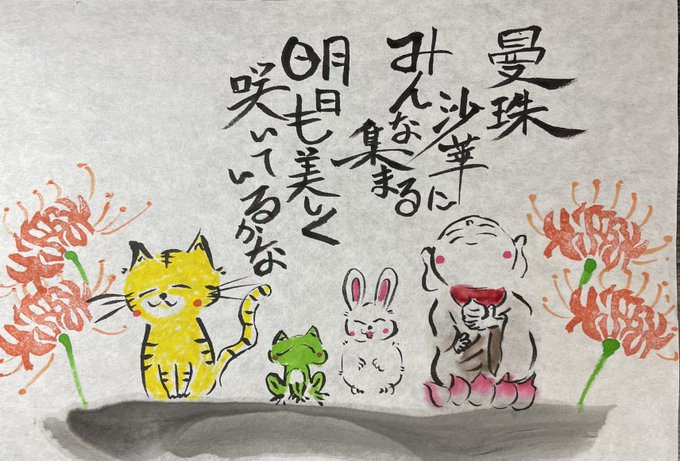 曼珠
沙華に
みんな
集まる
明日も美しく
咲いているかな